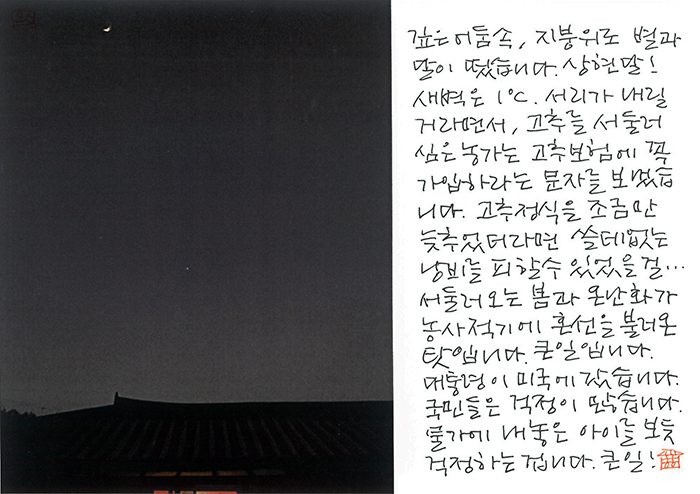 깊은어둠속, 지붕위로 별과
달이 떴습니다. 상현달!
새벽은 1℃. 서리가 내릴
거라면서, 고추를 서둘러
심은 농가는 고추보험에 꼭
가입하라는 문자를 보냈습
니다. 고추정식을 조금만
늦추었더라면 쓸데없는
낭비를 피할수 있었을걸…
서둘러오는 봄과 온난화가
농사적기에 혼선을 불러온
탓입니다. 큰일입니다.
대통령이 미국에 갔습니다.
국민들은 걱정이 많습니다.
물가에 내놓은 아이를 보듯
걱정하는겁니다. 큰일!